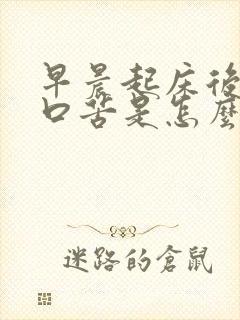 早晨起床後
口苦是怎麼
迷路的倉鼠